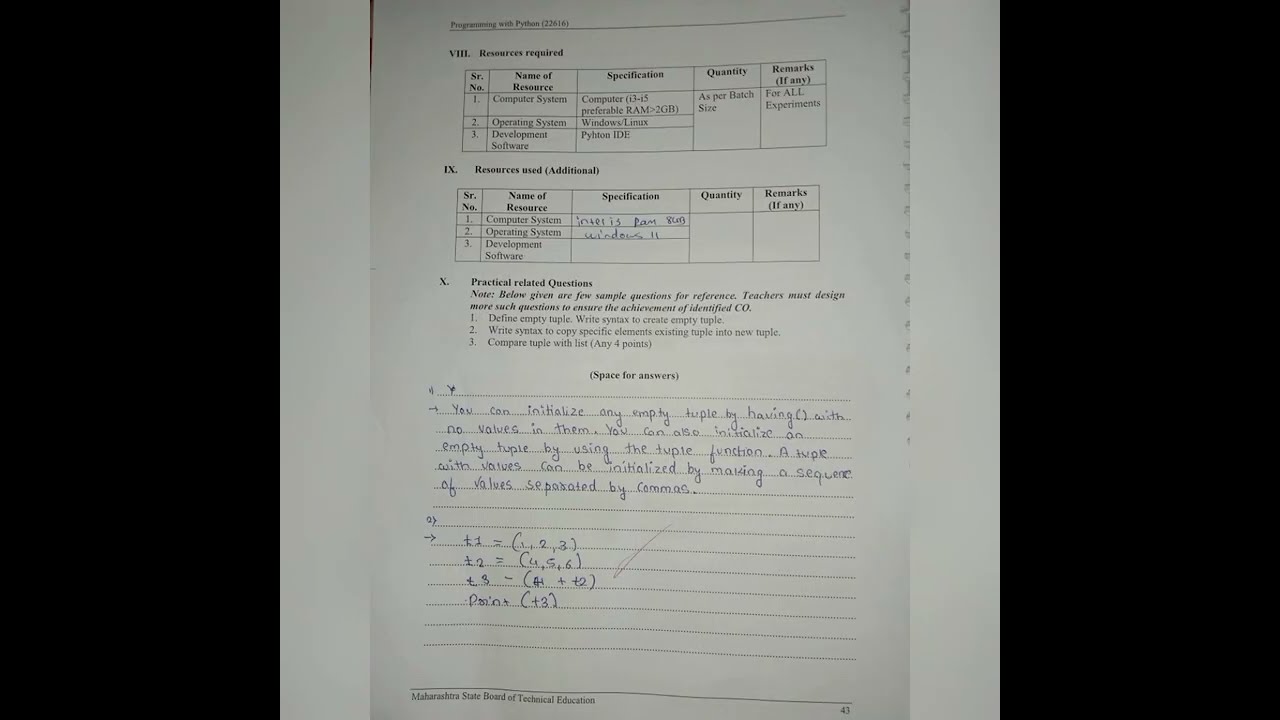 Programming with Python (22616)
VIII. Resources required
Sr. No. Name of Resource Specification Quantity Remarks (If any)
1. Computer System Computer (i3-i5 preferable RAM>2GB) As per Batch Size For ALL Experiments
2. Operating System Windows/Linux
3. Development Software Pyhton IDE
IX. Resources used (Additional)
Sr. No. Name of Resource Specification Quantity Remarks (If any)
1. Computer System inter i5 Ram 8GB
2. Operating System windows 11
3. Development Software
X. Practical related Questions
Note: Below given are few sample questions for reference. Teachers must design
more such questions to ensure the achievement of identified CO.
1. Define empty tuple. Write syntax to create empty tuple.
2. Write syntax to copy specific elements existing tuple into new tuple.
3. Compare tuple with list (Any 4 points)
(Space for answers)
1)
→ You can initialize any empty tuple by having () with
no values in them. You can also initialize an
empty tuple by using the tuple function. A tuple
with values can be initialized by making a sequenc
of values separated by commas.
2)
→ t1 = (1, 2, 3)
t2 = (4, 5, 6)
t3 - (t1 + t2)
Print (t3)
Maharashtra State Board of Technical Education
43